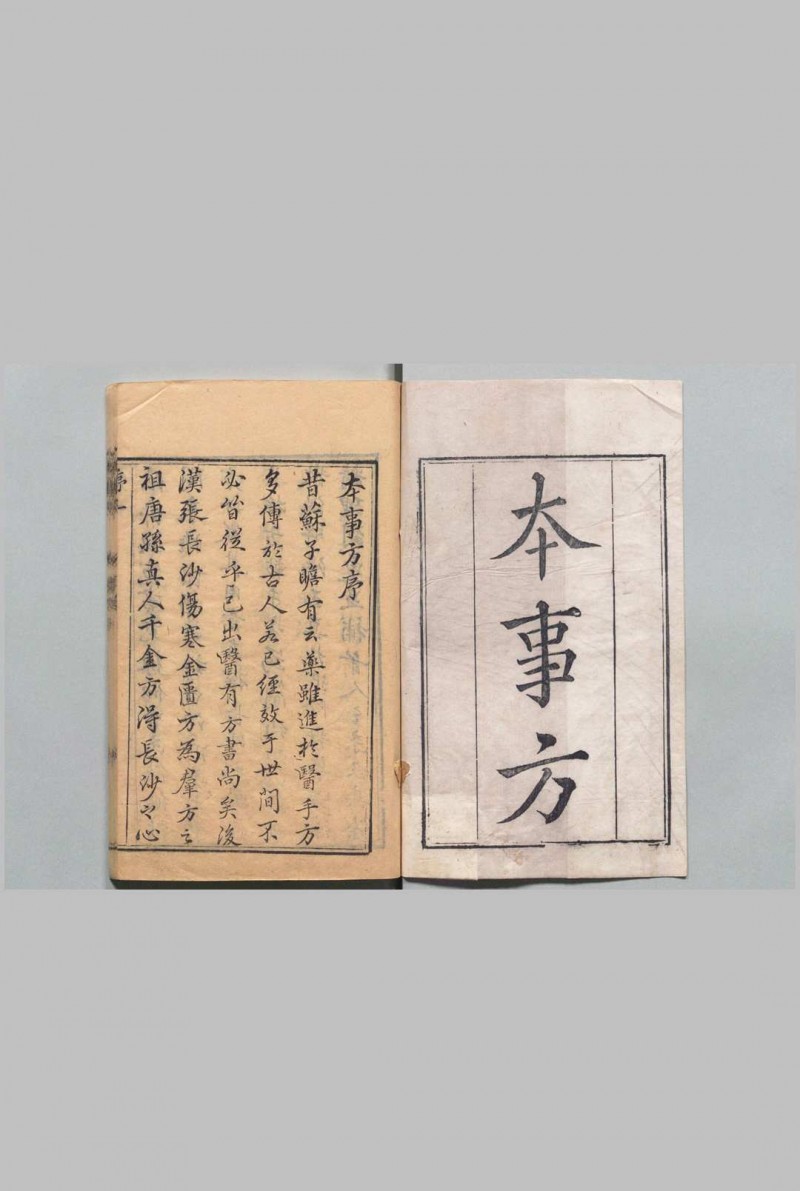 本事方
本事方序
昔蘇子瞻有云藥雖進於醫手方
多傳於古人若已經效于世間不
必皆從乎已出醫有方書尚矣後
漢張長沙傷寒金匱方為羣方之
祖唐孫真人千金方得長沙之心
序一